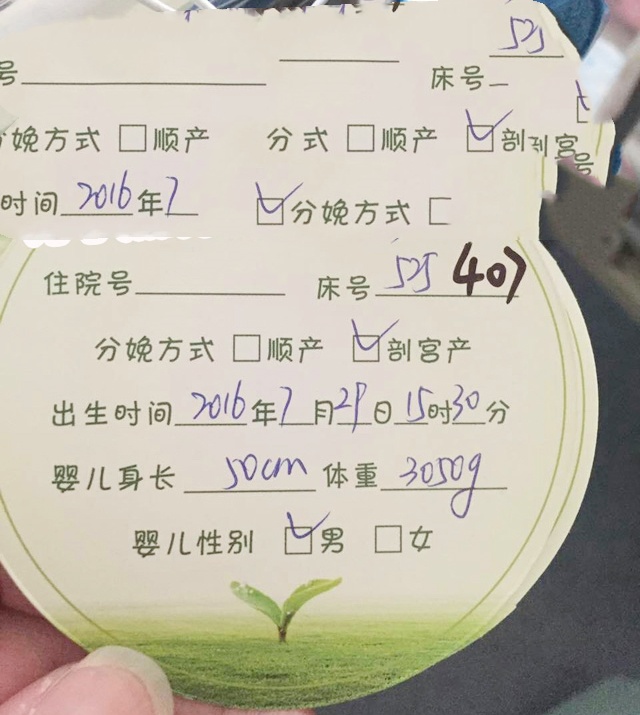 525
号 床号
娩方式 □顺产 分式 □顺产 ☑剖 宫
时间 2016 年 7 ☑分娩方式
号
住院号 床号 525 (407
分娩方式 □顺产 ☑剖宫产
出生时间 2016 年 7 月 29 日 15 时 30 分
婴儿身长 50cm 体重 3050g
婴儿性别 ☑男 □女